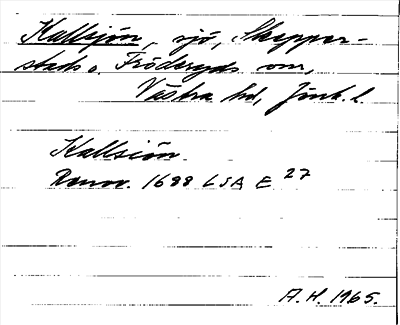 Kallsjön, sjö, Skepper-
stads o. Fröderyds snr,
Västra hd, Jönk. l.
Kallsiön.
Renov. 1688 LSA E 27
A. H. 1965.